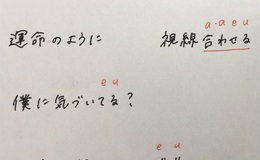 a・a e u
運命のように 視線合わせる
e u
僕に気づいてる?